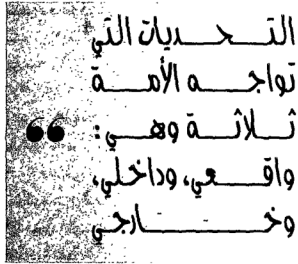 التحديات التي
تواجه الأمة
ثلاثة وهي:
واقعي، وداخلي،
وخارجي